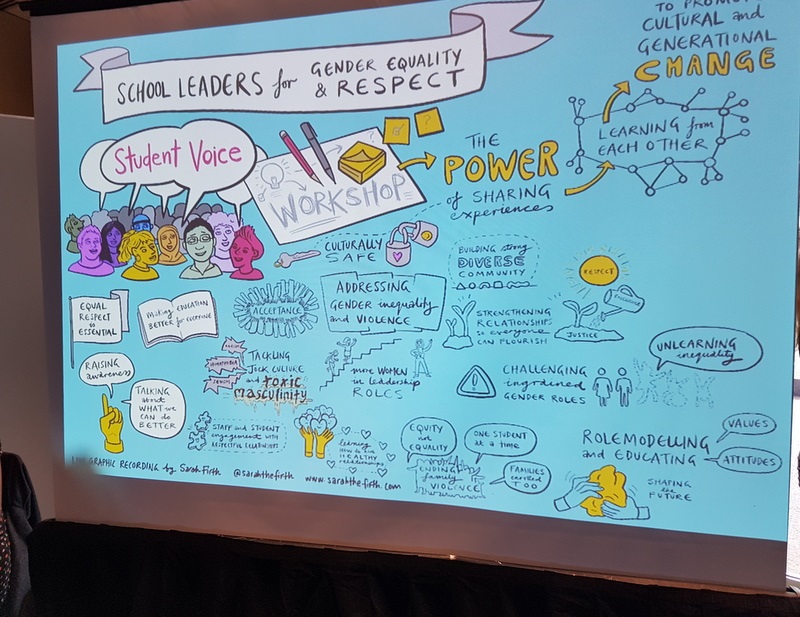 SCHOOL LEADERS for GENDER EQUALITY
& RESPECT
TO PROMOTE
CULTURAL and
GENERATIONAL
CHANGE
LEARNING from
EACH OTHER
Student Voice
WORKSHOP
THE
POWER
of SHARING
experiences
CULTURALLY
SAFE
BUILDING strong
DIVERSE
COMMUNITY
RESPECT
EQUAL
RESPECT
is
ESSENTIAL
Making
BETTER
EDUCATION
for everyone
ACCEPTANCE
ADDRESSING
GENDER inequality
and VIOLENCE
STRENGTHENING
RELATIONSHIPS
so everyone
CAN FLOURISH
JUSTICE
RAISING
awareness
TALKING
about
WHAT we
CAN do
BETTER
SEXISM
TACKLING
JOCK CULTURE
and toxic
masculinity
more WOMEN
in leadership
ROLES
CHALLENGING
ingrained
GENDER ROLES
UNLEARNING
inequality
STAFF and STUDENT
engagement with
RESPECTFUL RELATIONSHIPS
learning
how to live
HEALTHY
relationships
EQUITY
not
EQUALITY
ONE STUDENT
at a time
ENDING
family
VIOLENCE
FAMILIES
TOO
ROLEMODELLING
and EDUCATING
VALUES
ATTITUDES
SHAPING
the
FUTURE
GRAPHIC RECORDING by Sarah Firth @sarahthefirth www.sarahthefirth.com